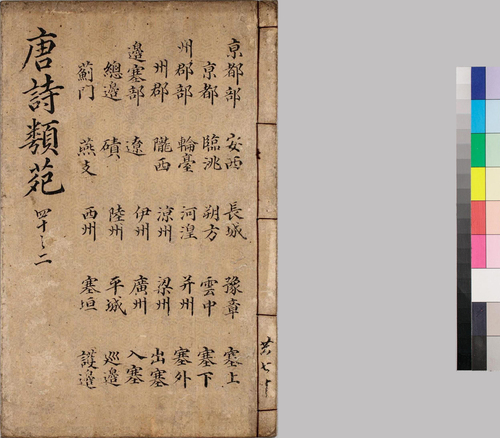 京都部 安西 長城 豫章 塞上
京都 臨洮 朔方 雲中 塞下
州郡部 輪臺 河湟 并州 塞外
州郡 隴西 涼州 梁州 出塞
邊塞部 遼 伊州 廣州 入塞
總邊 磧 陸州 平城 巡邊
薊門 燕支 西州 塞垣 護邊
唐詩類苑 四十之二